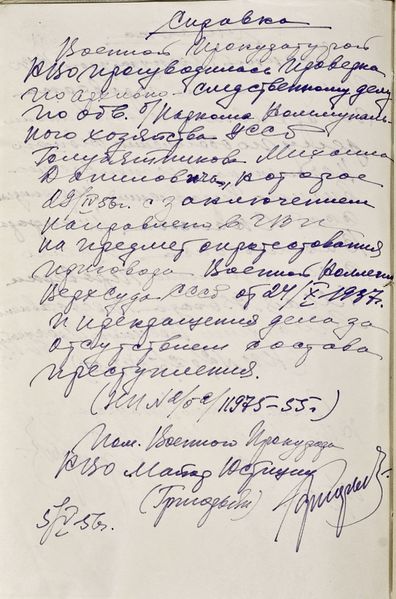 Справка
Военной Прокуратурой
КВО производилась проверка
по архивно-следственному делу
по обв. б/Наркома Коммуналь-
ного хозяйства УССР
Голубятникова Михаила
Даниловича, которое
29/IV 56г. с заключением
направлено в ГВП
на предмет опротестования
приговора Военной Коллегии
ВерхСуда СССР от 24/X-1937г.
и прекращения дела за
отсутствием состава
преступления.
11975-55г)
Пом. Военного Прокурора
КВО Майор Юстиции
5/V 56г.